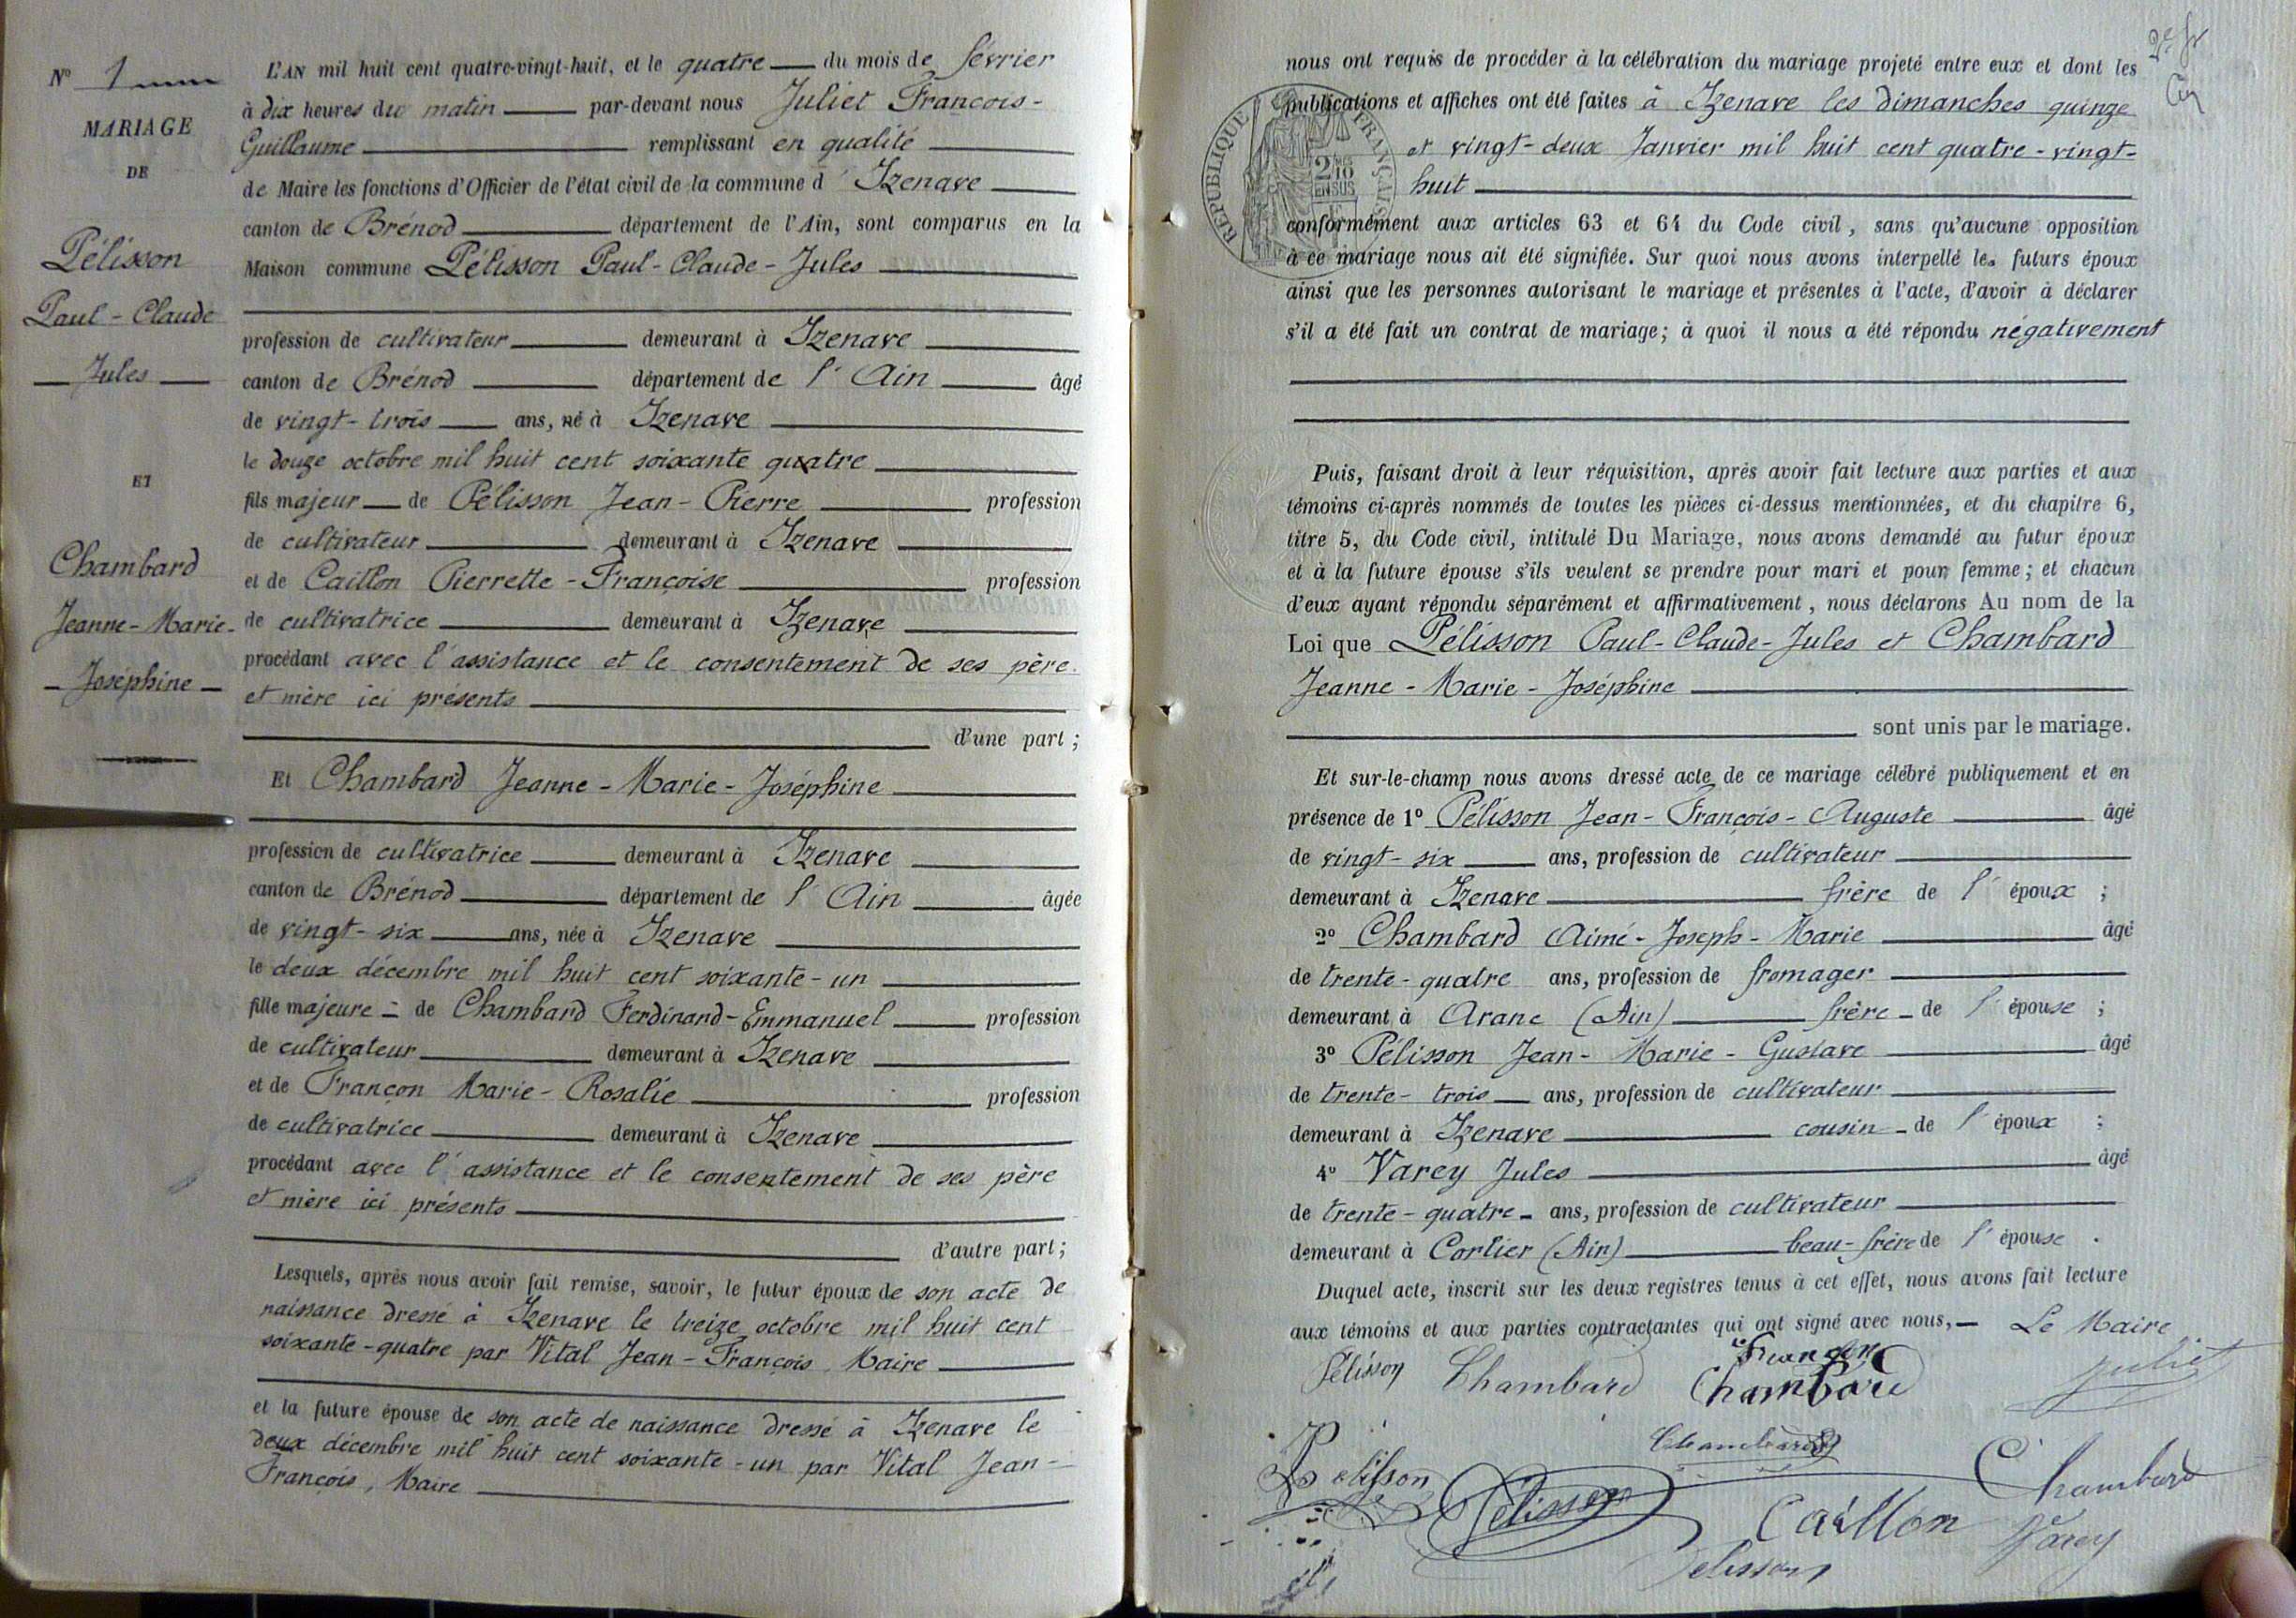 N° 1
MARIAGE
DE
Pélisson
Paul-Claude
Jules
ET
Chambard
Jeanne-Marie-
Joséphine
L'AN mil huit cent quatre-vingt-huit, et le quatre du mois de février
à dix heures du matin par-devant nous Juliet François-
Guillaume remplissant en qualité
de Maire les fonctions d'Officier de l'état civil de la commune d'Izenave
canton de Brénod département de l'Ain, sont comparus en la
Maison commune Pélisson Paul-Claude-Jules
profession de cultivateur demeurant à Izenave
canton de Brénod département de l'Ain âgé
de vingt-trois ans, né à Izenave
le douze octobre mil huit cent soixante quatre
fils majeur de Pélisson Jean-Pierre profession
de cultivateur demeurant à Izenave
et de Caillon Pierrette-Françoise profession
de cultivatrice demeurant à Izenave
procédant avec l'assistance et le consentement de ses père
et mère ici présents
d'une part ;
Et Chambard Jeanne-Marie-Joséphine
profession de cultivatrice demeurant à Izenave
canton de Brénod département de l'Ain âgée
de vingt-six ans, née à Izenave
le deux décembre mil huit cent soixante-un
fille majeure - de Chambard Ferdinand-Emmanuel profession
de cultivateur demeurant à Izenave
et de Françon Marie-Rosalie profession
de cultivatrice demeurant à Izenave
procédant avec l'assistance et le consentement de ses père
et mère ici présents
d'autre part ;
Lesquels, après nous avoir fait remise, savoir, le futur époux de son acte de
naissance dressé à Izenave le treize octobre mil huit cent
soixante-quatre par Vital Jean-François, Maire
et la future épouse de son acte de naissance dressé à Izenave le
deux décembre mil huit cent soixante-un par Vital Jean-
François, Maire
nous ont requis de procéder à la célébration du mariage projeté entre eux et dont les
publications et affiches ont été faites à Izenave les dimanches quinze
et vingt-deux Janvier mil huit cent quatre-vingt-
huit
RÉPUBLIQUE FRANÇAISE
conformément aux articles 63 et 64 du Code civil, sans qu'aucune opposition
à ce mariage nous ait été signifiée. Sur quoi nous avons interpellé les futurs époux
ainsi que les personnes autorisant le mariage et présentes à l'acte, d'avoir à déclarer
s'il a été fait un contrat de mariage; à quoi il nous a été répondu négativement
Puis, faisant droit à leur réquisition, après avoir fait lecture aux parties et aux
témoins ci-après nommés de toutes les pièces ci-dessus mentionnées, et du chapitre 6,
titre 5, du Code civil, intitulé Du Mariage, nous avons demandé au futur époux
et à la future épouse s'ils veulent se prendre pour mari et pour femme ; et chacun
d'eux ayant répondu séparément et affirmativement, nous déclarons Au nom de la
Loi que Pélisson Paul-Claude-Jules et Chambard
Jeanne-Marie-Joséphine
sont unis par le mariage.
Et sur-le-champ nous avons dressé acte de ce mariage célébré publiquement et en
présence de 1° Pélisson Jean-François-Auguste âgé
de vingt-six ans, profession de cultivateur
demeurant à Izenave frère de l'époux ;
2° Chambard Aimé-Joseph-Marie âgé
de trente-quatre ans, profession de fromager
demeurant à Aranc (Ain) frère de l'épouse ;
3° Pélisson Jean-Marie-Gustave âgé
de trente-trois ans, profession de cultivateur
demeurant à Izenave cousin de l'époux ;
4° Varey Jules âgé
de trente-quatre ans, profession de cultivateur
demeurant à Corlier (Ain) beau-frère de l'épouse .
Duquel acte, inscrit sur les deux registres tenus à cet effet, nous avons fait lecture
aux témoins et aux parties contractantes qui ont signé avec nous, — Le Maire
Pélisson Chambard Chambard Juliet
Pelisson Chambard Chambard
Pélisson Caillon Varey
Pelisson